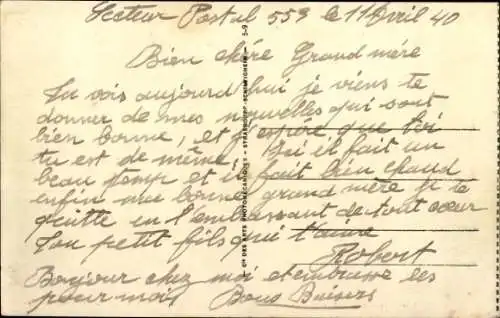 Secteur Postal 559 le 11 Avril 40
Bien chére Grand mére
Tu vois aujourd'hui je viens te
donner de mes nouvelles qui sont
bien bonne, et j'espere que toi
tu est de même, Ici il fait un
beau temp et il fait bien chaud
enfin ma bonne grand mére je te
quitte en l'embrassant de tout cœur
Ton petit fils qui t'aime
Robert
Bonjour chez moi et embrasse les
pour moi, Bons Baisers
Cie DES ARTS PHOTOMECANIQUES - STRASBOURG-SCHILTIGHEIM - 5-9